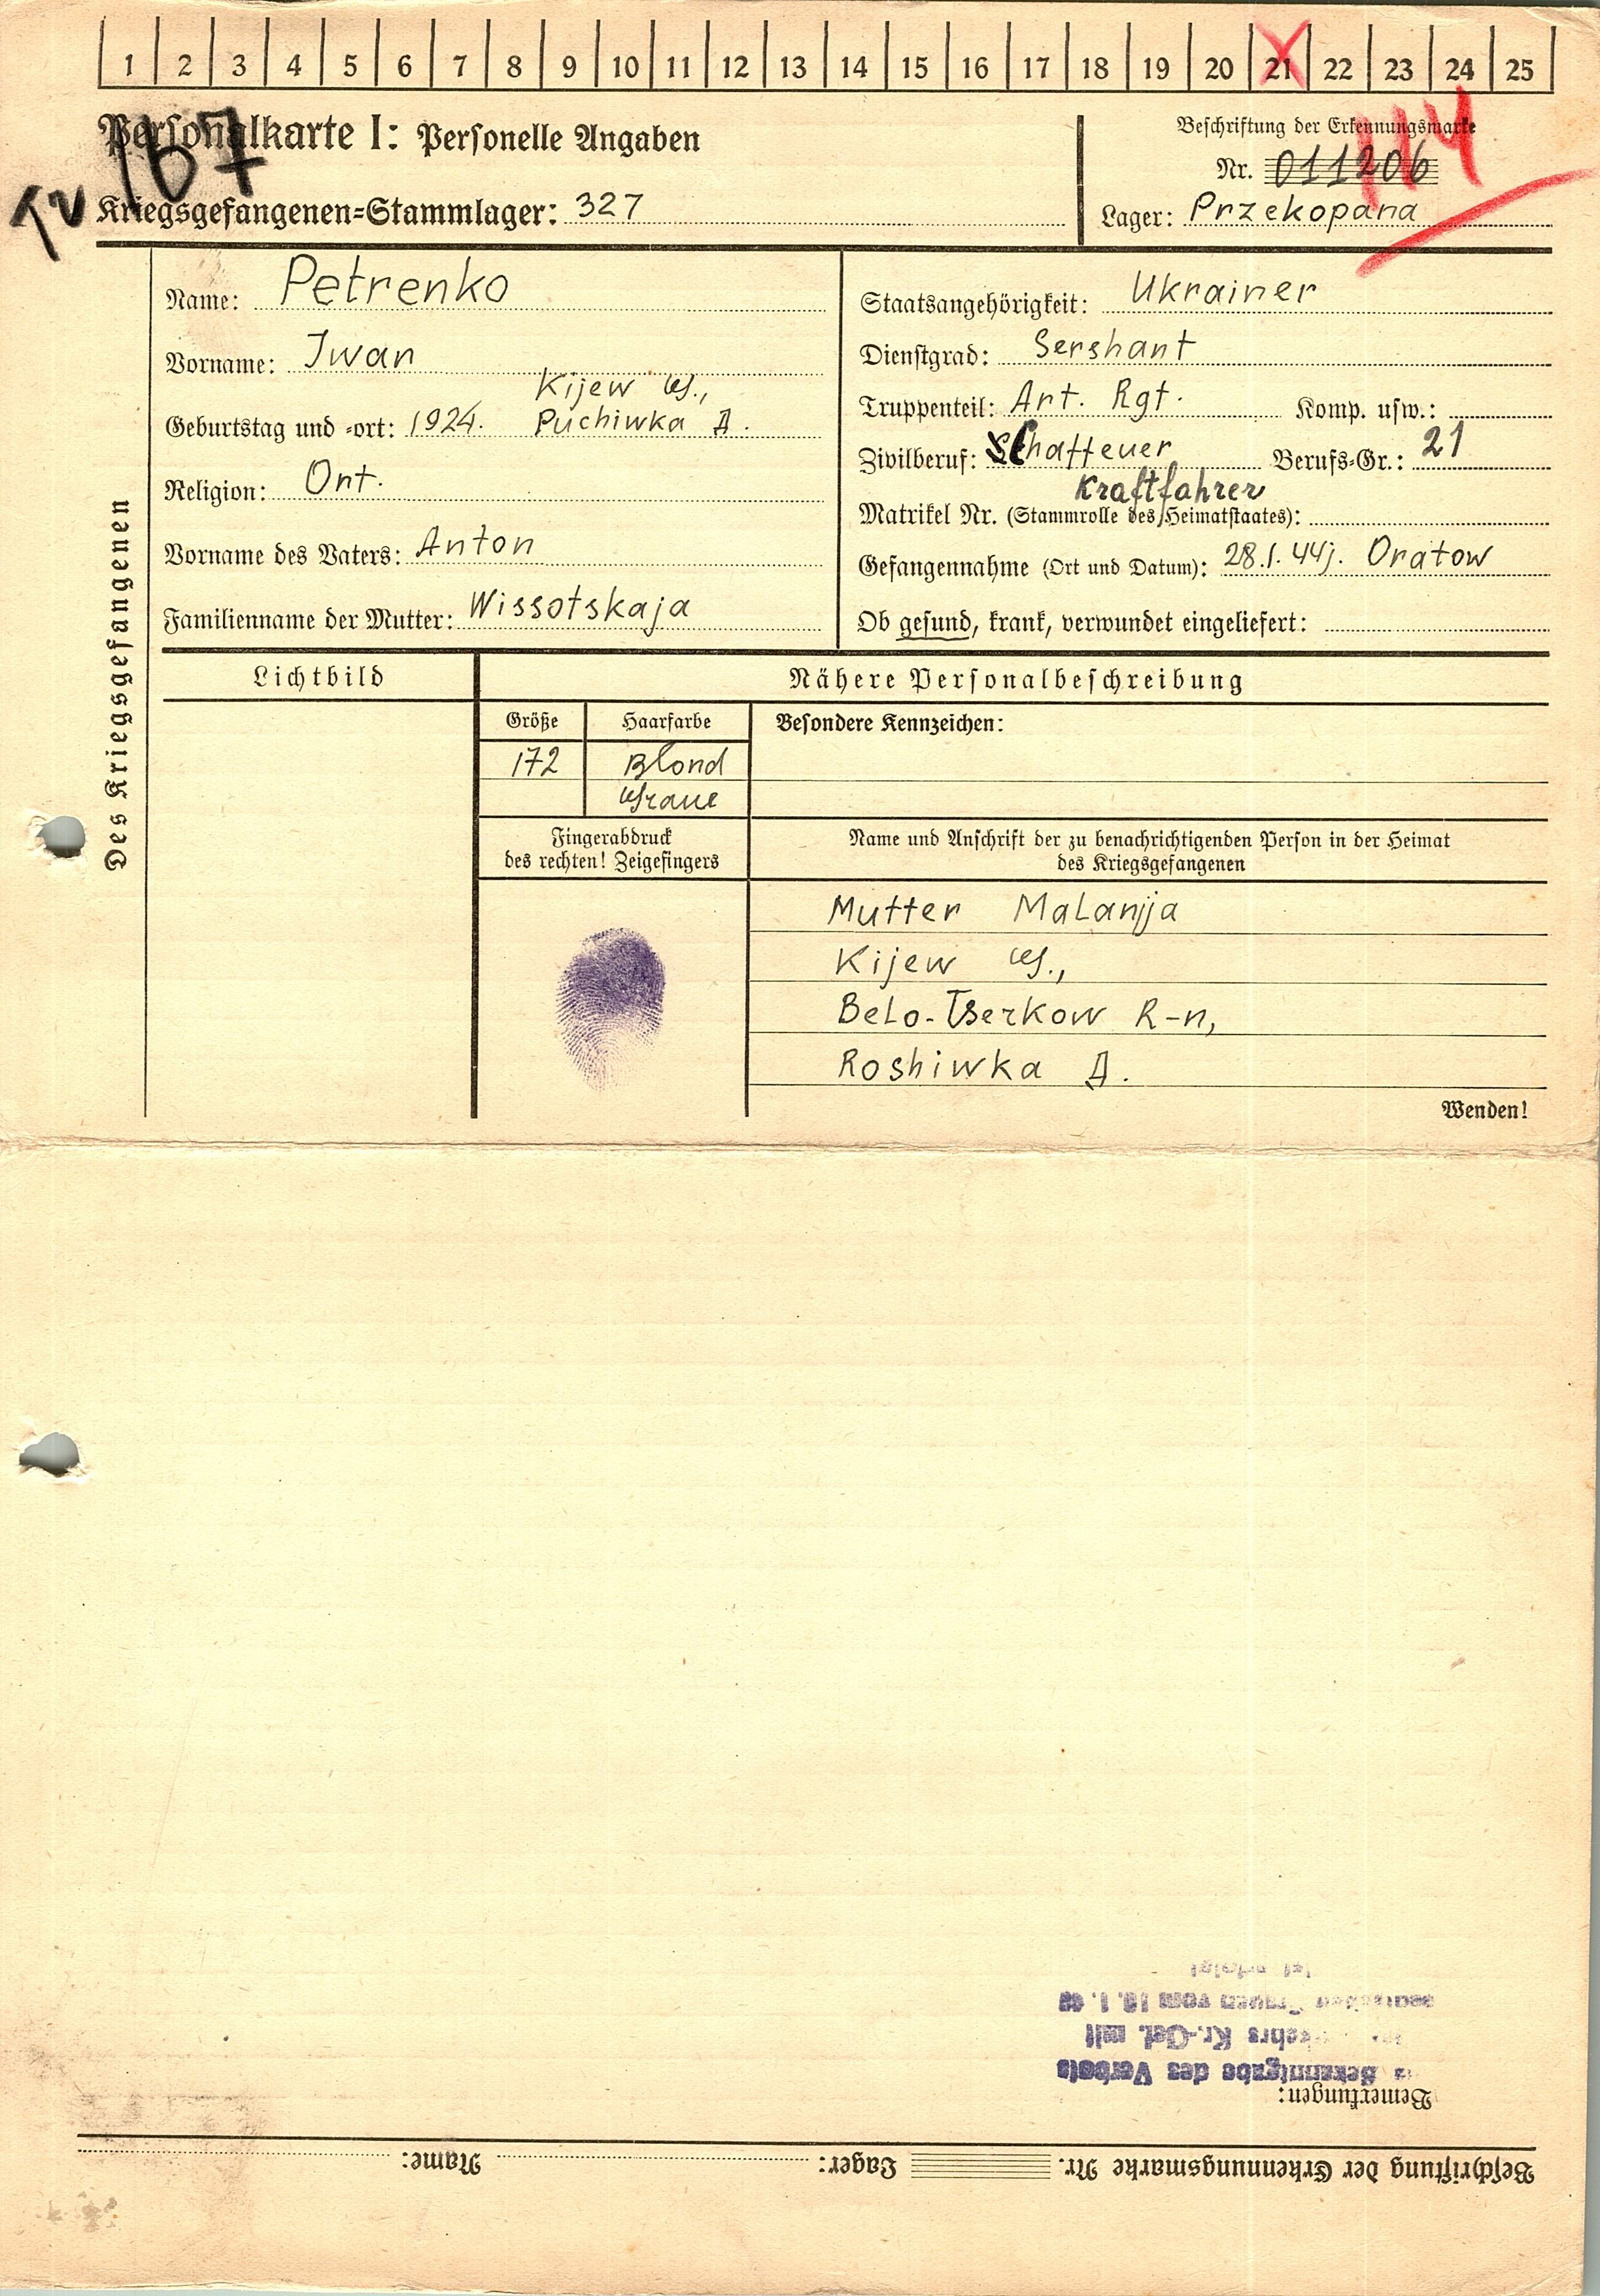 1 2 3 4 5 6 7 8 9 10 11 12 13 14 15 16 17 18 19 20 21 22 23 24 25
Personalkarte I: Personelle Angaben
167
Kriegsgefangenen-Stammlager: 327
Beschriftung der Erkennungsmarke
Nr. 011206
114
Lager: Przekopana
Des Kriegsgefangenen
Name: Petrenko
Vorname: Iwan
Kijew G.,
Geburtstag und -ort: 1924. Puchiwka D.
Religion: Ort.
Vorname des Vaters: Anton
Familienname der Mutter: Wissotskaja
Staatsangehörigkeit: Ukrainer
Dienstgrad: Sershant
Truppenteil: Art. Rgt. Komp. usw.:
Zivilberuf: Schatteuer Berufs-Gr.: 21
Kraftfahrer
Matrikel Nr. (Stammrolle des Heimatstaates):
Gefangennahme (Ort und Datum): 28.1.44j. Oratow
Ob gesund, krank, verwundet eingeliefert:
Lichtbild
Nähere Personalbeschreibung
Größe Haarfarbe Besondere Kennzeichen:
172 Blond
Graue
Fingerabdruck
des rechten! Zeigefingers
Name und Anschrift der zu benachrichtigenden Person in der Heimat
des Kriegsgefangenen
Mutter Malanjja
Kijew G.,
Belo-Tserkow R-n,
Roshiwka D.
Wenden!
Beschriftung der Erkennungsmarke Nr. Lager: Name:
Bemerkungen:
Bekanntgabe des Verbots
Kr.-Gef. mit
Frauen vom